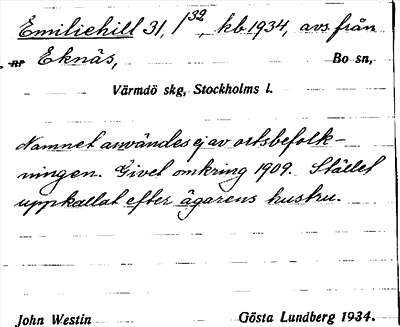 Emiliehill 31, 1³², kb. 1934, avs. från
nr Eknäs, Bo sn,
Värmdö skg, Stockholms l.
Namnet användes ej av ortsbefolk-
ningen. Givet omkring 1909. Stället
uppkallat efter ägarens hustru.
John Westin Gösta Lundberg 1934.